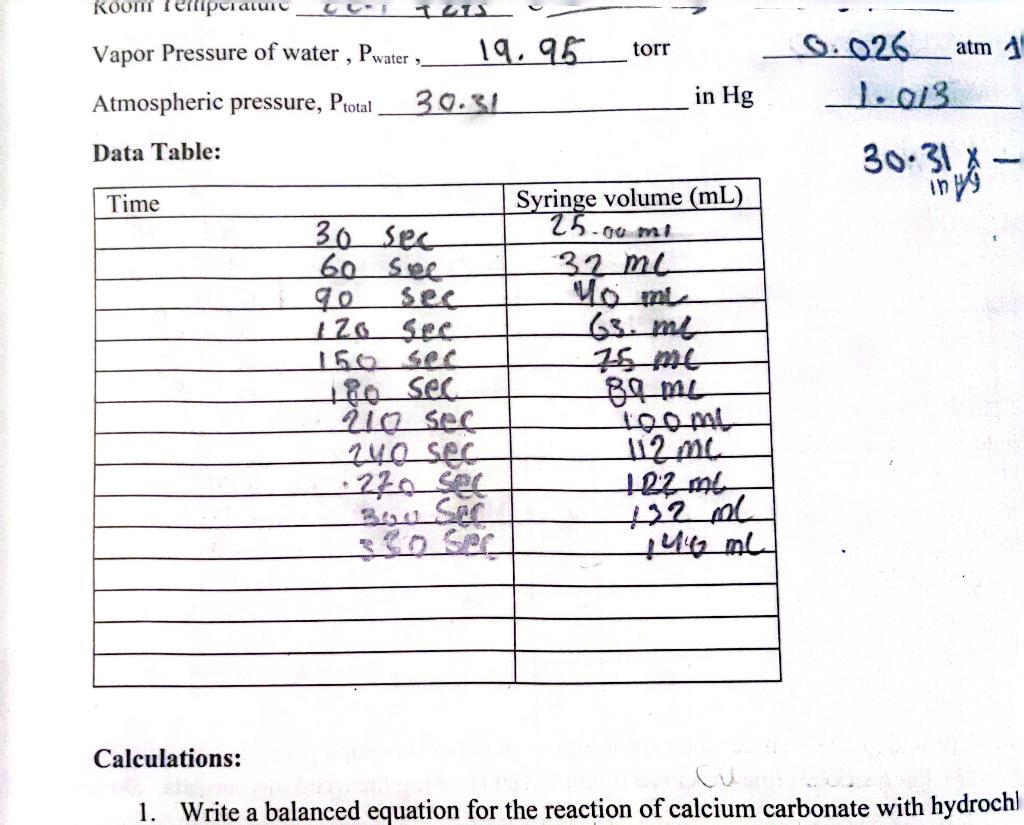 Room Temperature
Vapor Pressure of water , Pwater , 19.95 torr 0.026 atm
Atmospheric pressure, Ptotal 30.31 in Hg 1.013
Data Table: 30.31 x
in Hg
Time Syringe volume (mL)
30 sec 25.00 ml
60 sec 32 mL
90 sec 40 mL
120 sec 63. mL
150 sec 75 mL
180 sec 89 mL
210 sec 100 mL
240 sec 112 mL
270 sec 122 mL
300 sec 132 mL
330 sec mL
Calculations:
1. Write a balanced equation for the reaction of calcium carbonate with hydrochl